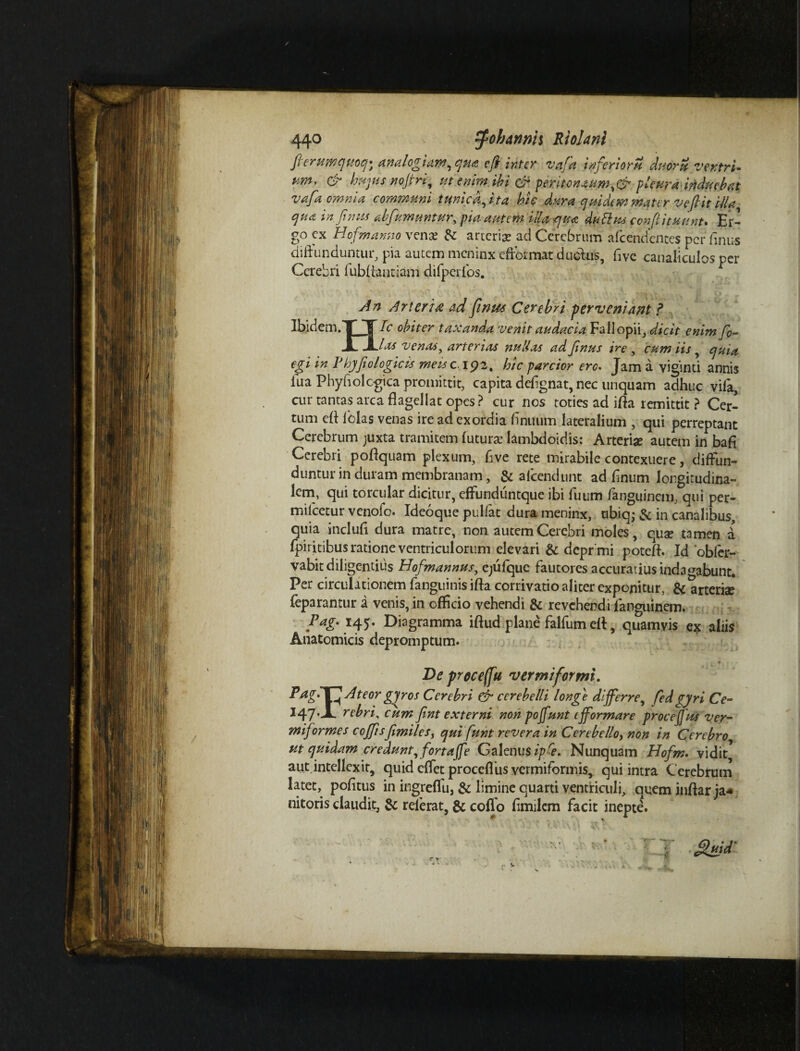 440 Johannis Riolani
ſterumquoq; analogiam, quæ eſt inter vaſa inferiorũ duorũ ventri-
um, & hujus noſtri, ut enim ibi & peritonæum, & pleura induebat
vaſa omnia communi tunicâ, ita hîc dura quidem mater veſtit illa,
quæ in ſinus abſumuntur, pia autem illa quæ ductus conſtituunt. Er-
go ex Hofmanno venæ & arteriæ ad Cerebrum aſcendentes per ſinus
diffunduntur, pia autem meninx efformat ductus, ſive canaliculos per
Cerebri ſubſtantiam diſperſos.
An Arteriæ ad ſinus Cerebri perveniant ?
Ibidem. HIc obiter taxanda venit audacia Fallopii, dicit enim ſo-
las venas, arterias nullas ad ſinus ire, cum iis, quia
egi in Phyſiologicis meis c. 192. hîc parcior ero. Jam à viginti annis
ſua Phyſiologica promittit, capita deſignat, nec unquam adhuc viſa,
cur tantas arca flagellat opes ? cur nos toties ad iſta remittit ? Cer-
tum eſt ſolas venas ire ad exordia ſinuum lateralium, qui perreptant
Cerebrum juxta tramitem futuræ lambdoidis: Arteriæ autem in baſi
Cerebri poſtquam plexum, ſive rete mirabile contexuere, diffun-
duntur in duram membranam, & aſcendunt ad ſinum longitudina-
lem, qui torcular dicitur, effundúntque ibi ſuum ſanguinem, qui per-
miſcetur venoſo. Ideóque pulſat dura meninx, ubiq; & in canalibus,
quia incluſi dura matre, non autem Cerebri moles, quæ tamen à
ſpiritibus ratione ventriculorum elevari & deprimi poteſt. Id obſer-
vabit diligentiùs Hofmannus, ejúſque fautores accuratius indagabunt.
Per circulationem ſanguinis iſta corrivatio aliter exponitur, & arteriæ
ſeparantur à venis, in officio vehendi & revehendi ſanguinem.
Pag. 145. Diagramma iſtud planè falſum eſt, quamvis ex aliis
Anatomicis depromptum.
De proceſſu vermiformi.
Pag. FAteor gyros Cerebri & cerebelli longè differre, ſed gyri Ce-
147. rebri, cùm ſint externi non poſſunt efformare proceſſus ver-
miformes coſſis ſimiles, qui ſunt revera in Cerebello, non in Cerebro,
ut quidam credunt, fortaſſe Galenus ipſe. Nunquam Hofm. vidit,
aut intellexit, quid eſſet proceſſus vermiformis, qui intra Cerebrum
latet, poſitus in ingreſſu, & limine quarti ventriculi, quem inſtar ja-
nitoris claudit, & reſerat, & coſſo ſimilem facit ineptè.
Quid